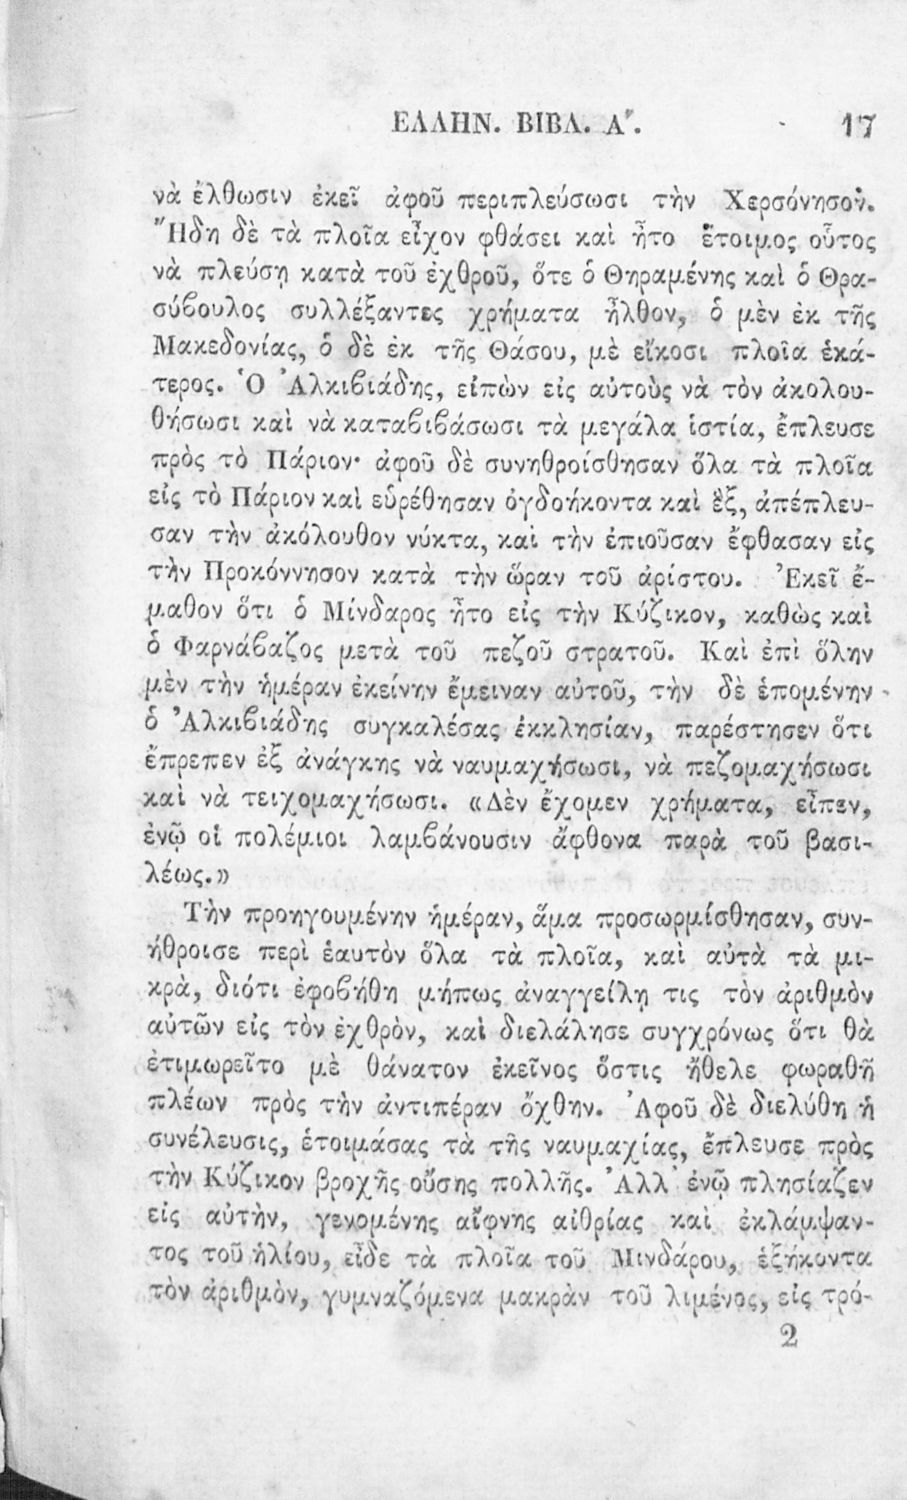 ΕΛΛΗΝ. ΒΙΒΛ. Α΄. 17
νὰ ἔλθωσιν ἐκεῖ ἀφοῦ περιπλεύσωσι τὴν Χερσόνησον.
Ἤδη δὲ τὰ πλοῖα εἶχον φθάσει καὶ ἦτο ἕτοιμος οὗτος
νὰ πλεύσῃ κατὰ τοῦ ἐχθροῦ, ὅτε ὁ Θηραμένης καὶ ὁ Θρα-
σύβουλος συλλέξαντες χρήματα ἦλθον, ὁ μὲν ἐκ τῆς
Μακεδονίας, ὁ δὲ ἐκ τῆς Θάσου, μὲ εἴκοσι πλοῖα ἑκά-
τερος. Ὁ Ἀλκιβιάδης, εἰπὼν εἰς αὐτοὺς νὰ τὸν ἀκολου-
θήσωσι καὶ νὰ καταβιβάσωσι τὰ μεγάλα ἱστία, ἔπλευσε
πρὸς τὸ Πάριον· ἀφοῦ δὲ συνηθροίσθησαν ὅλα τὰ πλοῖα
εἰς τὸ Πάριον καὶ εὑρέθησαν ὀγδοήκοντα καὶ ἓξ, ἀπέπλευ-
σαν τὴν ἀκόλουθον νύκτα, καὶ τὴν ἐπιοῦσαν ἔφθασαν εἰς
τὴν Προκόννησον κατὰ τὴν ὥραν τοῦ ἀρίστου. Ἐκεῖ ἔ-
μαθον ὅτι ὁ Μίνδαρος ἦτο εἰς τὴν Κύζικον, καθὼς καὶ
ὁ Φαρνάβαζος μετὰ τοῦ πεζοῦ στρατοῦ. Καὶ ἐπὶ ὅλην
μὲν τὴν ἡμέραν ἐκείνην ἔμειναν αὐτοῦ, τὴν δὲ ἑπομένην
ὁ Ἀλκιβιάδης συγκαλέσας ἐκκλησίαν, παρέστησεν ὅτι
ἔπρεπεν ἐξ ἀνάγκης νὰ ναυμαχήσωσι, νὰ πεζομαχήσωσι
καὶ νὰ τειχομαχήσωσι. «Δὲν ἔχομεν χρήματα, εἶπεν,
ἐνῷ οἱ πολέμιοι λαμβάνουσιν ἄφθονα παρὰ τοῦ βασι-
λέως.»
Τὴν προηγουμένην ἡμέραν, ἅμα προσωρμίσθησαν, συν-
ήθροισε περὶ ἑαυτὸν ὅλα τὰ πλοῖα, καὶ αὐτὰ τὰ μι-
κρὰ, διότι ἐφοβήθη μήπως ἀναγγείλῃ τις τὸν ἀριθμὸν
αὐτῶν εἰς τὸν ἐχθρὸν, καὶ διελάλησε συγχρόνως ὅτι θὰ
ἐτιμωρεῖτο μὲ θάνατον ἐκεῖνος ὅστις ἤθελε φωραθῆ
πλέων πρὸς τὴν ἀντιπέραν ὄχθην. Ἀφοῦ δὲ διελύθη ἡ
συνέλευσις, ἑτοιμάσας τὰ τῆς ναυμαχίας, ἔπλευσε πρὸς
τὴν Κύζικον βροχῆς οὔσης πολλῆς. Ἀλλ᾽ ἐνῷ πλησίαζεν
εἰς αὐτὴν, γενομένης αἴφνης αἰθρίας καὶ ἐκλάμψαν-
τος τοῦ ἡλίου, εἶδε τὰ πλοῖα τοῦ Μινδάρου, ἑξήκοντα
τὸν ἀριθμὸν, γυμναζόμενα μακρὰν τοῦ λιμένος, εἰς τρό-
2